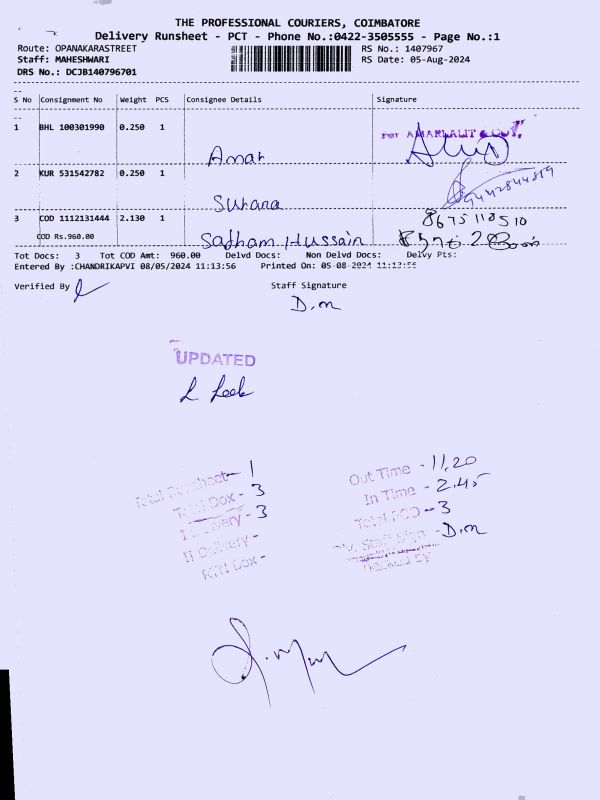 THE PROFESSIONAL COURIERS, COIMBATORE
Delivery Runsheet - PCT - Phone No.:0422-3505555 - Page No.:1
Route: OPANAKARASTREET RS No.: 1407967
Staff: MAHESHWARI RS Date: 05-Aug-2024
DRS No.: DCJB140796701
S No Consignment No Weight PCS Consignee Details Signature
1 BHL 100301990 0.250 1 For AMARLALIT & COY.
Amar
2 KUR 531542782 0.250 1 9442844819
Suhara
3 COD 1112131444 2.130 1 8675118510
COD Rs.960.00 Satham Hussain
Tot Docs: 3 Tot COD Amt: 960.00 Delvd Docs: Non Delvd Docs: Delvy Pts:
Entered By :CHANDRIKAPVI 08/05/2024 11:13:56 Printed On: 05-08-2024 11:13:56
Verified By Staff Signature
D.m
UPDATED
Total Runsheet- 1 Out Time - 11.20
Total Dox - 3 In Time - 2.45
I Delivery - 3 Total POD - 3
II Delivery - Staff Sign - D.m
RTN Dox -